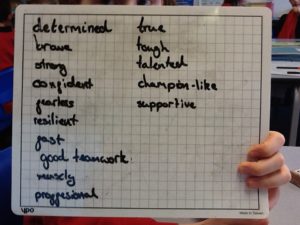 determined
brave
strong
confident
fearless
resilient
fast
good teamwork
muscly
proffesional
true
tough
talented
champion-like
supportive
YPO
Made in Taiwan